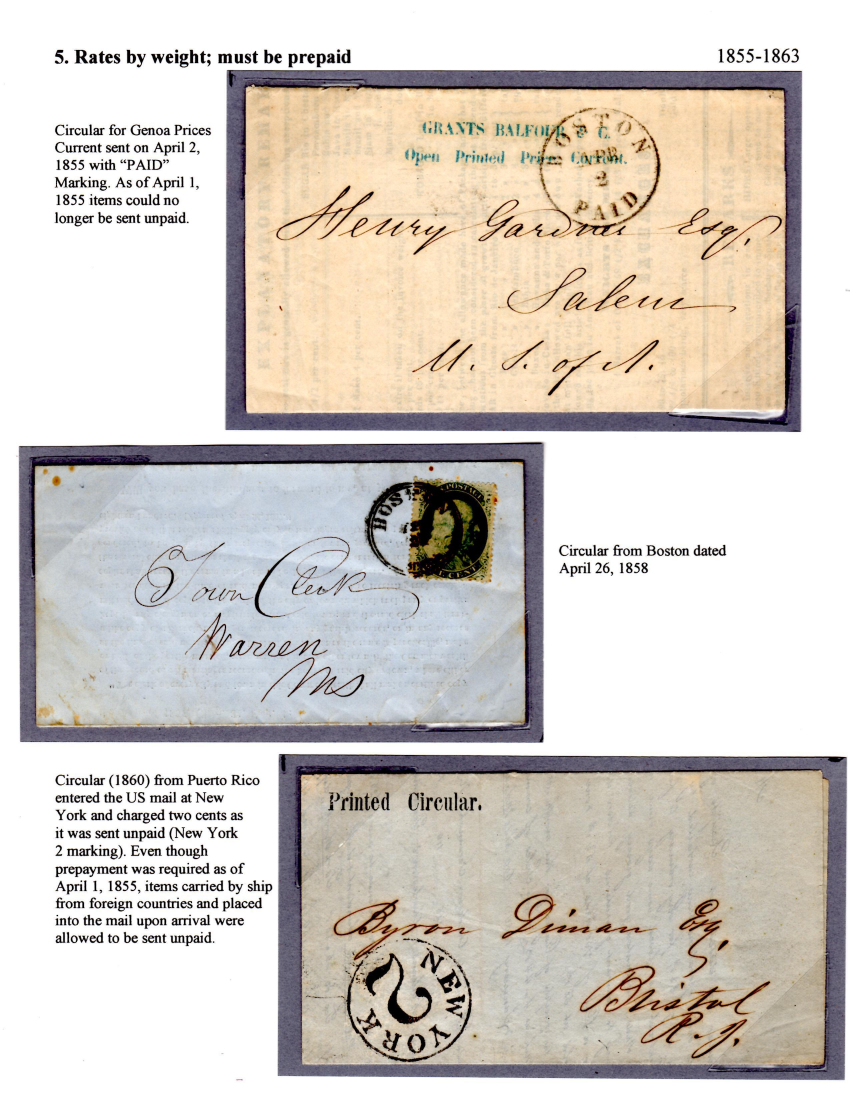 5. Rates by weight; must be prepaid
1855-1863
Circular for Genoa Prices
Current sent on April 2,
1855 with “PAID”
Marking. As of April 1,
1855 items could no
longer be sent unpaid.
GRANTS BALFOUR & C.
Open Printed Prices Corrent.
BOSTON
APR
2
PAID
Henry Gardner Esq.
Salem
U. S. of A.
BOSTON
POSTAGE
CENT
Town Clerk
Warren
Ms
Circular from Boston dated
April 26, 1858
Circular (1860) from Puerto Rico
entered the US mail at New
York and charged two cents as
it was sent unpaid (New York
2 marking). Even though
prepayment was required as of
April 1, 1855, items carried by ship
from foreign countries and placed
into the mail upon arrival were
allowed to be sent unpaid.
Printed Circular.
Byron Diman Esq,
Bristol
R. I.
NEW YORK
2